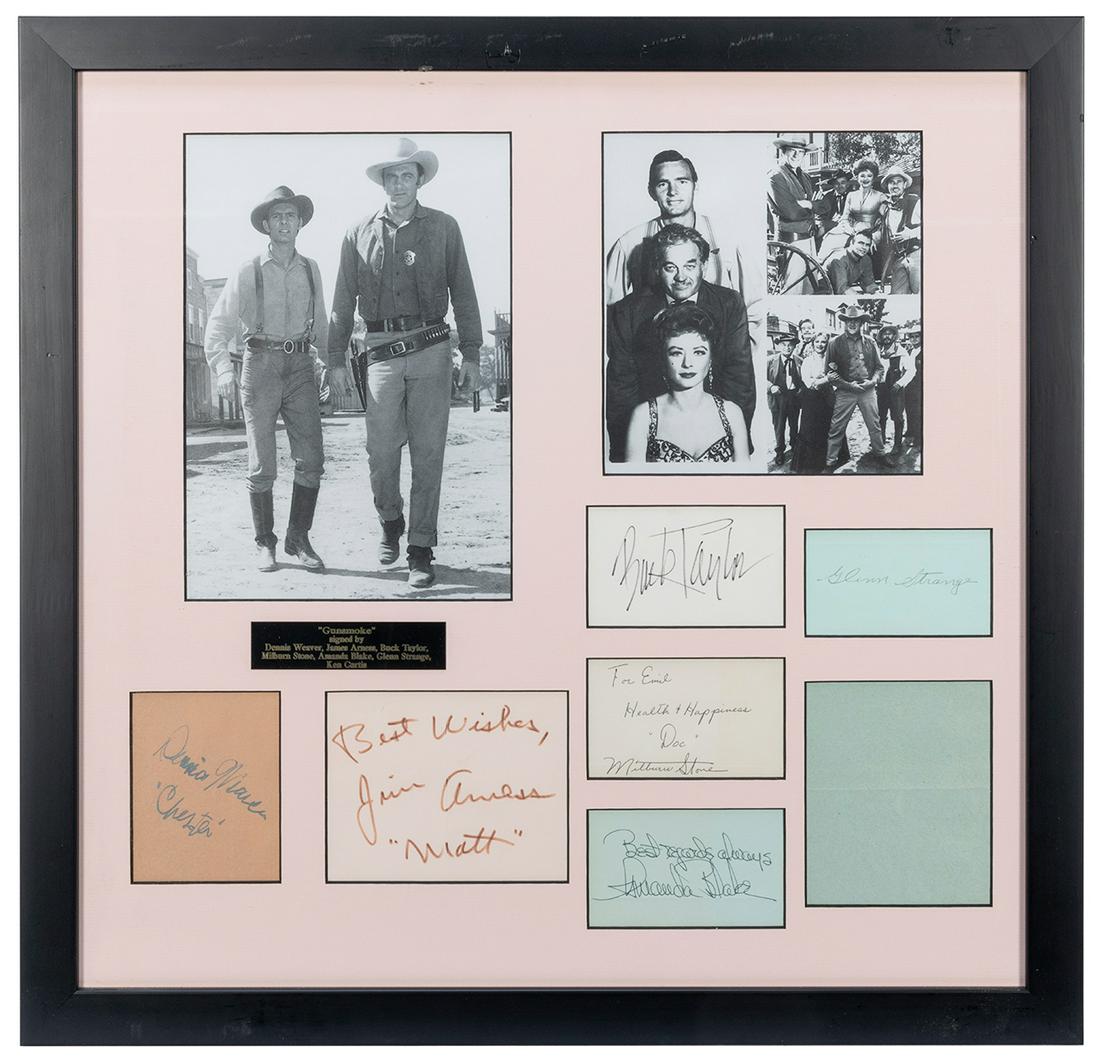 "Gunsmoke"
signed by
Dennis Weaver, James Arness, Buck Taylor,
Milburn Stone, Amanda Blake, Glenn Strange,
Ken Curtis
Dennis Weaver
"Chester"
Best Wishes,
Jim Arness
"Matt"
Buck Taylor
For Emil
Health + Happiness
"Doc"
Milburn Stone
Best regards always
Amanda Blake
Glenn Strange